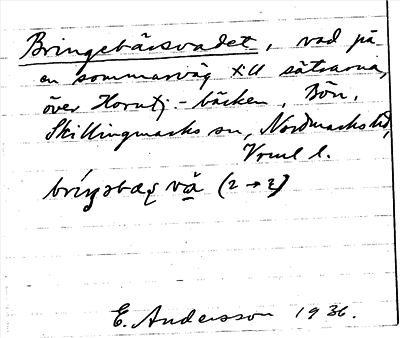 Bringebärsvadet, vad på
en sommarväg till sätrarna,
över Horntj.-bäcken, Bön,
Skillingmarks sn, Nordmarks hd,
Vrml l.
E. Andersson 1936.